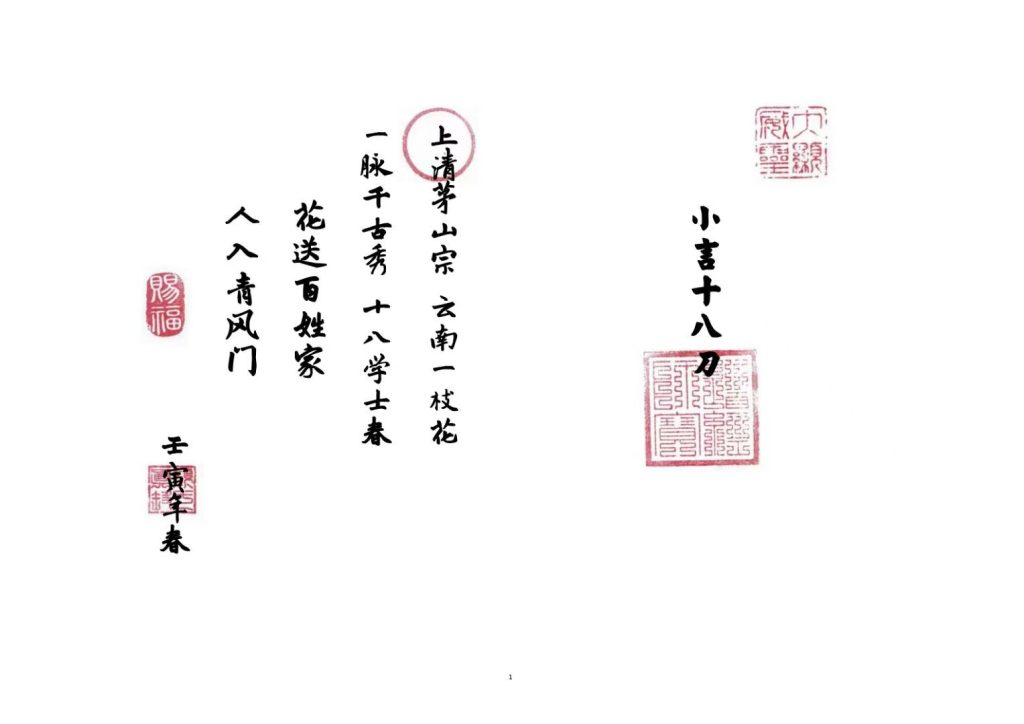 大顯威靈
小言十八刀
道經師寶
上清茅山宗 云南一枝花
一脉千古秀 十八学士春
花送百姓家
人入青风门
賜福
壬寅年春
1